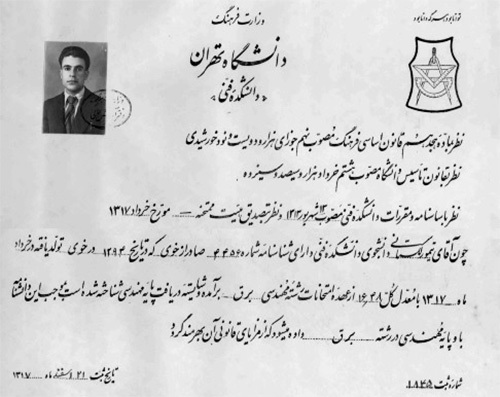 توانا بود هر که دانا بود
وزارت فرهنگ
دانشگاه تهران
«دانشکده فنی»
نظر بماده هجدهم قانون اساسی فرهنگ مصوب نهم جوزای هزار و دویست و نود خورشیدی
نظر بقانون تأسیس دانشگاه مصوب هشتم خرداد هزار و سیصد و سیزده
نظر باساسنامه و مقررات دانشکده فنی مصوب شهریور ۱۳۱۳ و نظر بتصدیق هیئت ممتحنه — مورخ خرداد ۱۳۱۷
چون آقای دانشجوی دانشکده فنی دارای شناسنامه شماره ۴۴۵۶ صادر از خوی که در تاریخ ۱۲۹۴ در خوی تولد یافته و خرداد
ماه ۱۳۱۷ با معدل کل ۱۶٫۴۸ از عهده امتحانات رشته مهندسی برق برآمده و شایسته دریافت پایه مهندسی شناخته شده است بموجب این دانشنامه
باو پایه مهندسی در رشته برق داده میشود که از مزایای قانونی آن بهره‌مند گردد
شماره ثبت ۱۸۴۵
تاریخ ثبت ۲۱ اسفند ماه ۱۳۱۷